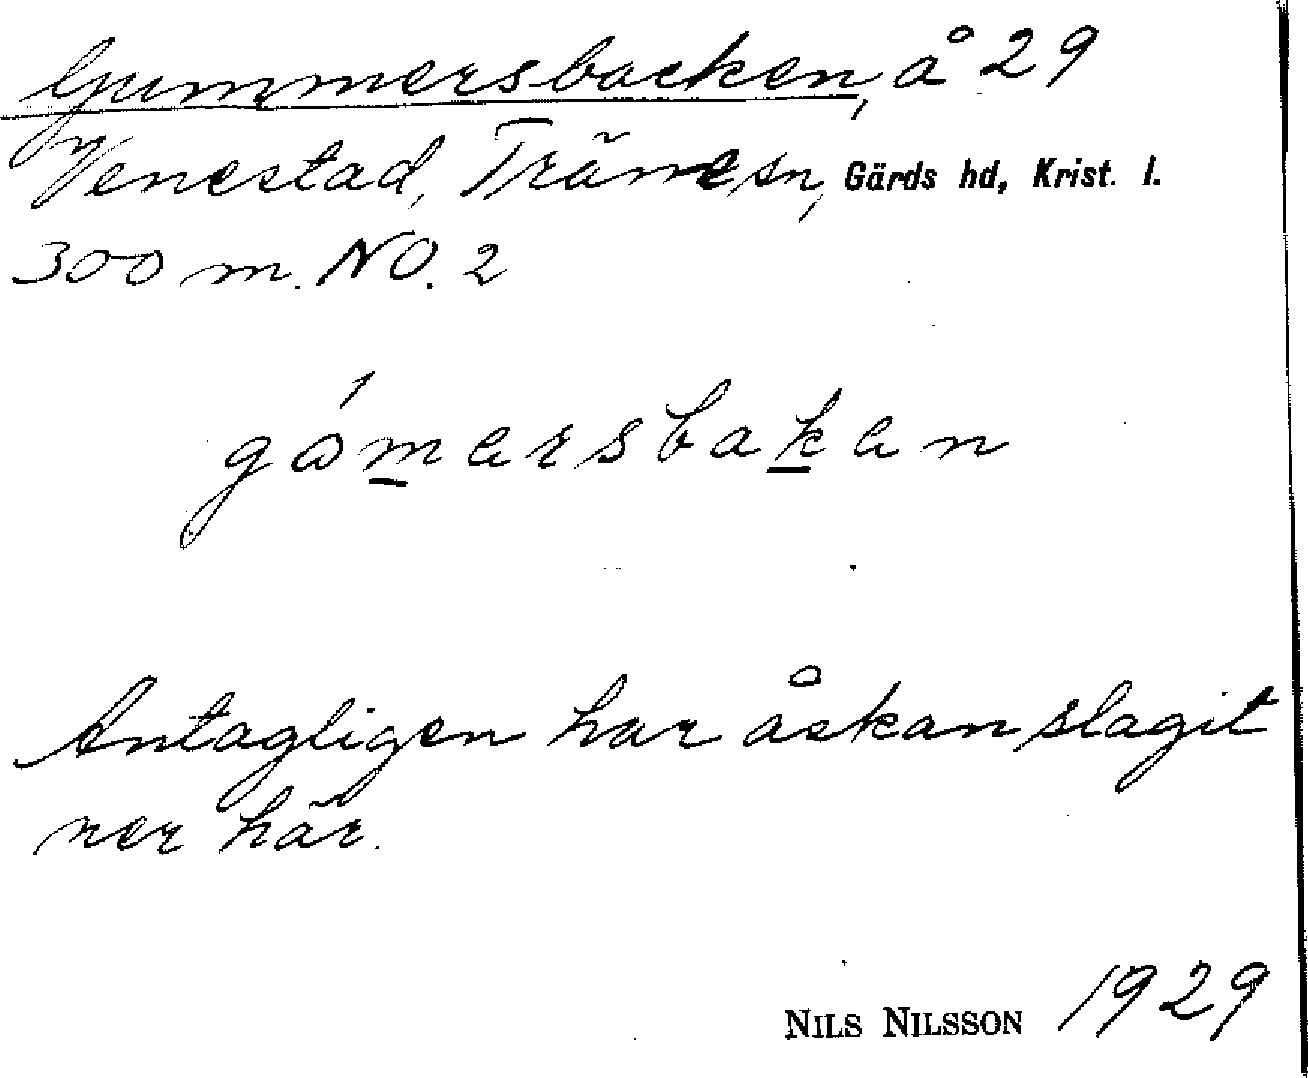 Gummersbacken, å 29
Venestad, Träne sn, Gärds hd, Krist. l.
300 m. NO. 2
gómersbaken
Antagligen har åskan slagit
ner här.
NILS NILSSON 1929